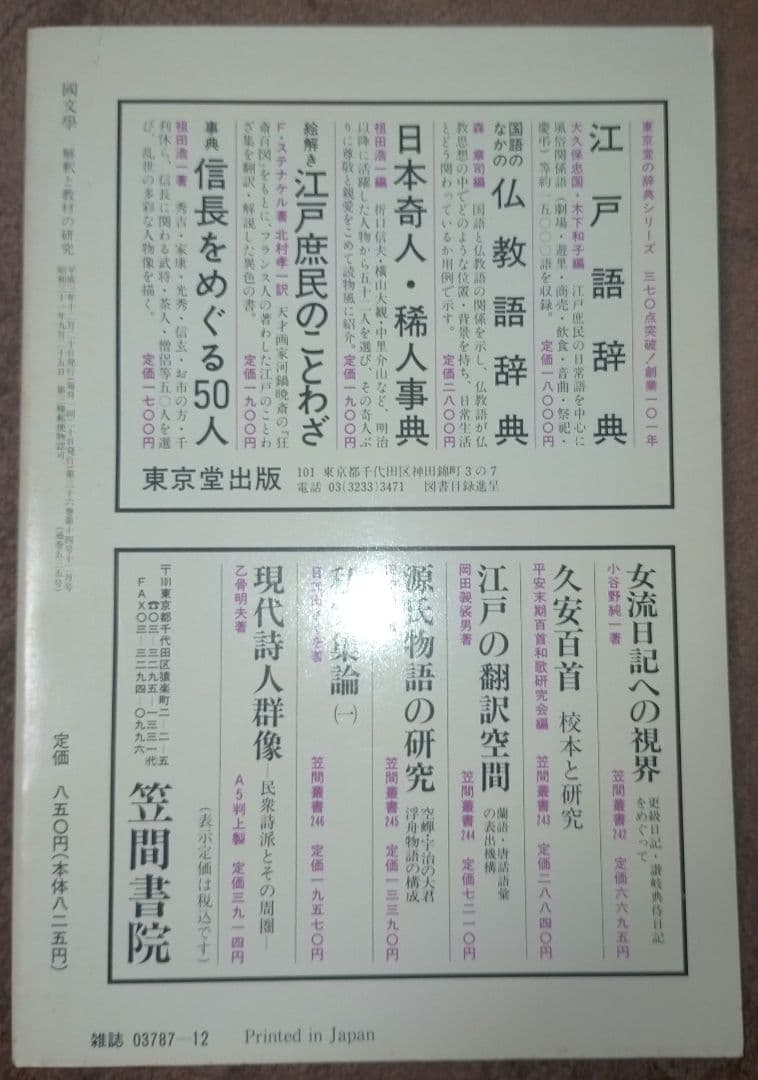 東京堂の辞典シリーズ 三七〇点突破！創業一〇一年
江戸語辞典
大久保忠国・木下和子編 江戸庶民の日常語を中心に
風俗関係語（劇場・遊里・商売・飲食・音曲・祭祀・
慶弔）等約一五〇〇〇語を収録。 定価一八〇〇〇円
国語の
なかの 仏教語辞典
森 章司編 国語と仏教語の関係を示し、仏教語が仏
教思想の中でどのような位置・背景を持ち、日常生活
とどう関わっているか用例で示す。 定価二八〇〇円
日本奇人・稀人事典
祖田浩一編 折口信夫・横山大観・中里介山など、明治
以降に活躍した人物から五十二人を選び、その奇人ぶ
りに尊敬と親愛をこめて読物風に紹介。 定価一九〇〇円
絵解き 江戸庶民のことわざ
F・ステナケル著 北村孝一訳 天才画家河鍋暁斎の『狂
斎百図』をもとに、フランス人の著わした江戸のことわ
ざ集を翻訳・解説した異色の書。 定価一九〇〇円
事典 信長をめぐる50人
祖田浩一著 秀吉・家康・光秀・信玄・お市の方・千
利休ら、信長に関わる武将・茶人・僧侶等五〇人を選
び、乱世の多彩な人物像を描く。 定価一七〇〇円
東京堂出版
101 東京都千代田区神田錦町3の7
電話 03(3233)3471 図書目録進呈
女流日記への視界 更級日記・讃岐典侍日記
をめぐって
小谷野純一著 笠間叢書242 定価六六九五円
久安百首 校本と研究
平安末期百首和歌研究会編 笠間叢書243 定価二八八四〇円
江戸の翻訳空間 蘭語・唐話語彙
の表出機構
岡田袈裟男著 笠間叢書244 定価七二一〇円
源氏物語の研究 空蟬・宇治の大君
浮舟物語の構成
笠間叢書245 定価一三三九〇円
集論(一)
笠間叢書246 定価一九五七〇円
現代詩人群像―民衆詩派とその周圏―
乙骨明夫著 A5判上製 定価三九一四円
(表示定価は税込です)
笠間書院
〒101東京都千代田区猿楽町二－二－五
☎〇三－三二九五－一三三一(代)
FAX〇三－三二九四－〇九九六
國文學 解釈と教材の研究
定価 八五〇円(本体八二五円)
雑誌 03787―12 Printed in Japan